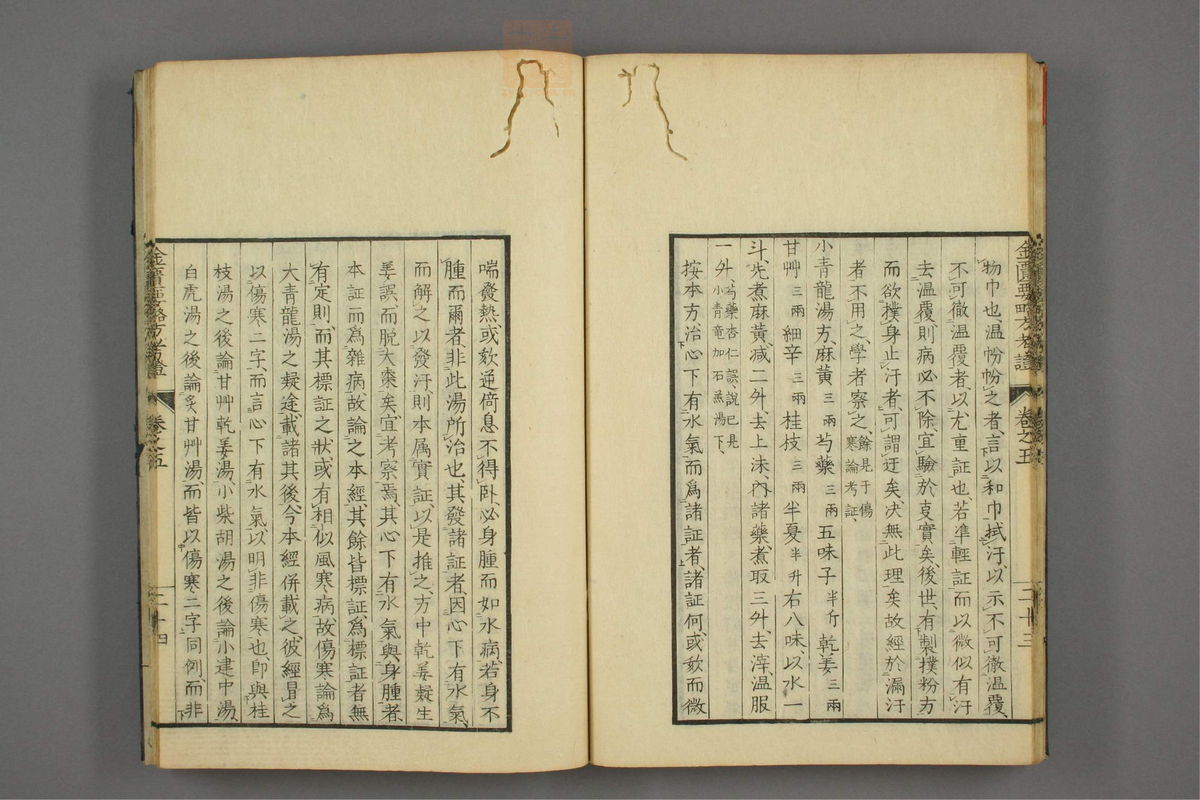 金匱要略方考證 卷之五 二十三
物巾也、温粉粉之者、言以和巾拭汗、以示不可徹温覆、
不可徹温覆者、以尤重証也、若準輕証而以微似有汗
去温覆則病必不除、宜驗於衷實矣、後世有製撲粉方
而欲撲身止汗者、可謂迂矣、决無此理矣、故經於漏汗
者不用之、學者察之、餘見于傷
寒論考証、
小青龍湯方、麻黄三兩 芍藥三兩 五味子半斤 乾姜三兩
甘艸三兩 細辛三兩 桂枝三兩 半夏半升 右八味、以水一
斗、先煮麻黄、减二升、去上沫、內諸藥、煮取三升、去滓、温服
一升、芍藥杏仁誤說已見
小青竜加石羔湯下、
按本方治心下有水氣而爲諸証者、諸証何、或欬而微
喘發熱或欬逆倚息不得卧必身腫而如水病、若身不
腫而爾者、非此湯所治也、其發諸証者、因心下有水氣、
而解之以發汗則本属實証、以是推之、方中乾姜疑生
姜誤、而脱大棗矣、宜考察焉、其心下有水氣與身腫者、
本証而爲雜病、故論之本經、其餘皆標証、爲標証者無
有定則、而其標証之狀或有相似風寒病、故傷寒論爲
大青龍湯之疑途、載諸其後、今本經併載之、彼經冒之
以傷寒二字、而言心下有水氣、以明非傷寒也、卽與桂
枝湯之後論甘艸乾姜湯、小柴胡湯之後論小建中湯、
白虎湯之後論炙甘艸湯、而皆以傷寒二字同例、而非
金匱要略方考證 卷之五 二十四